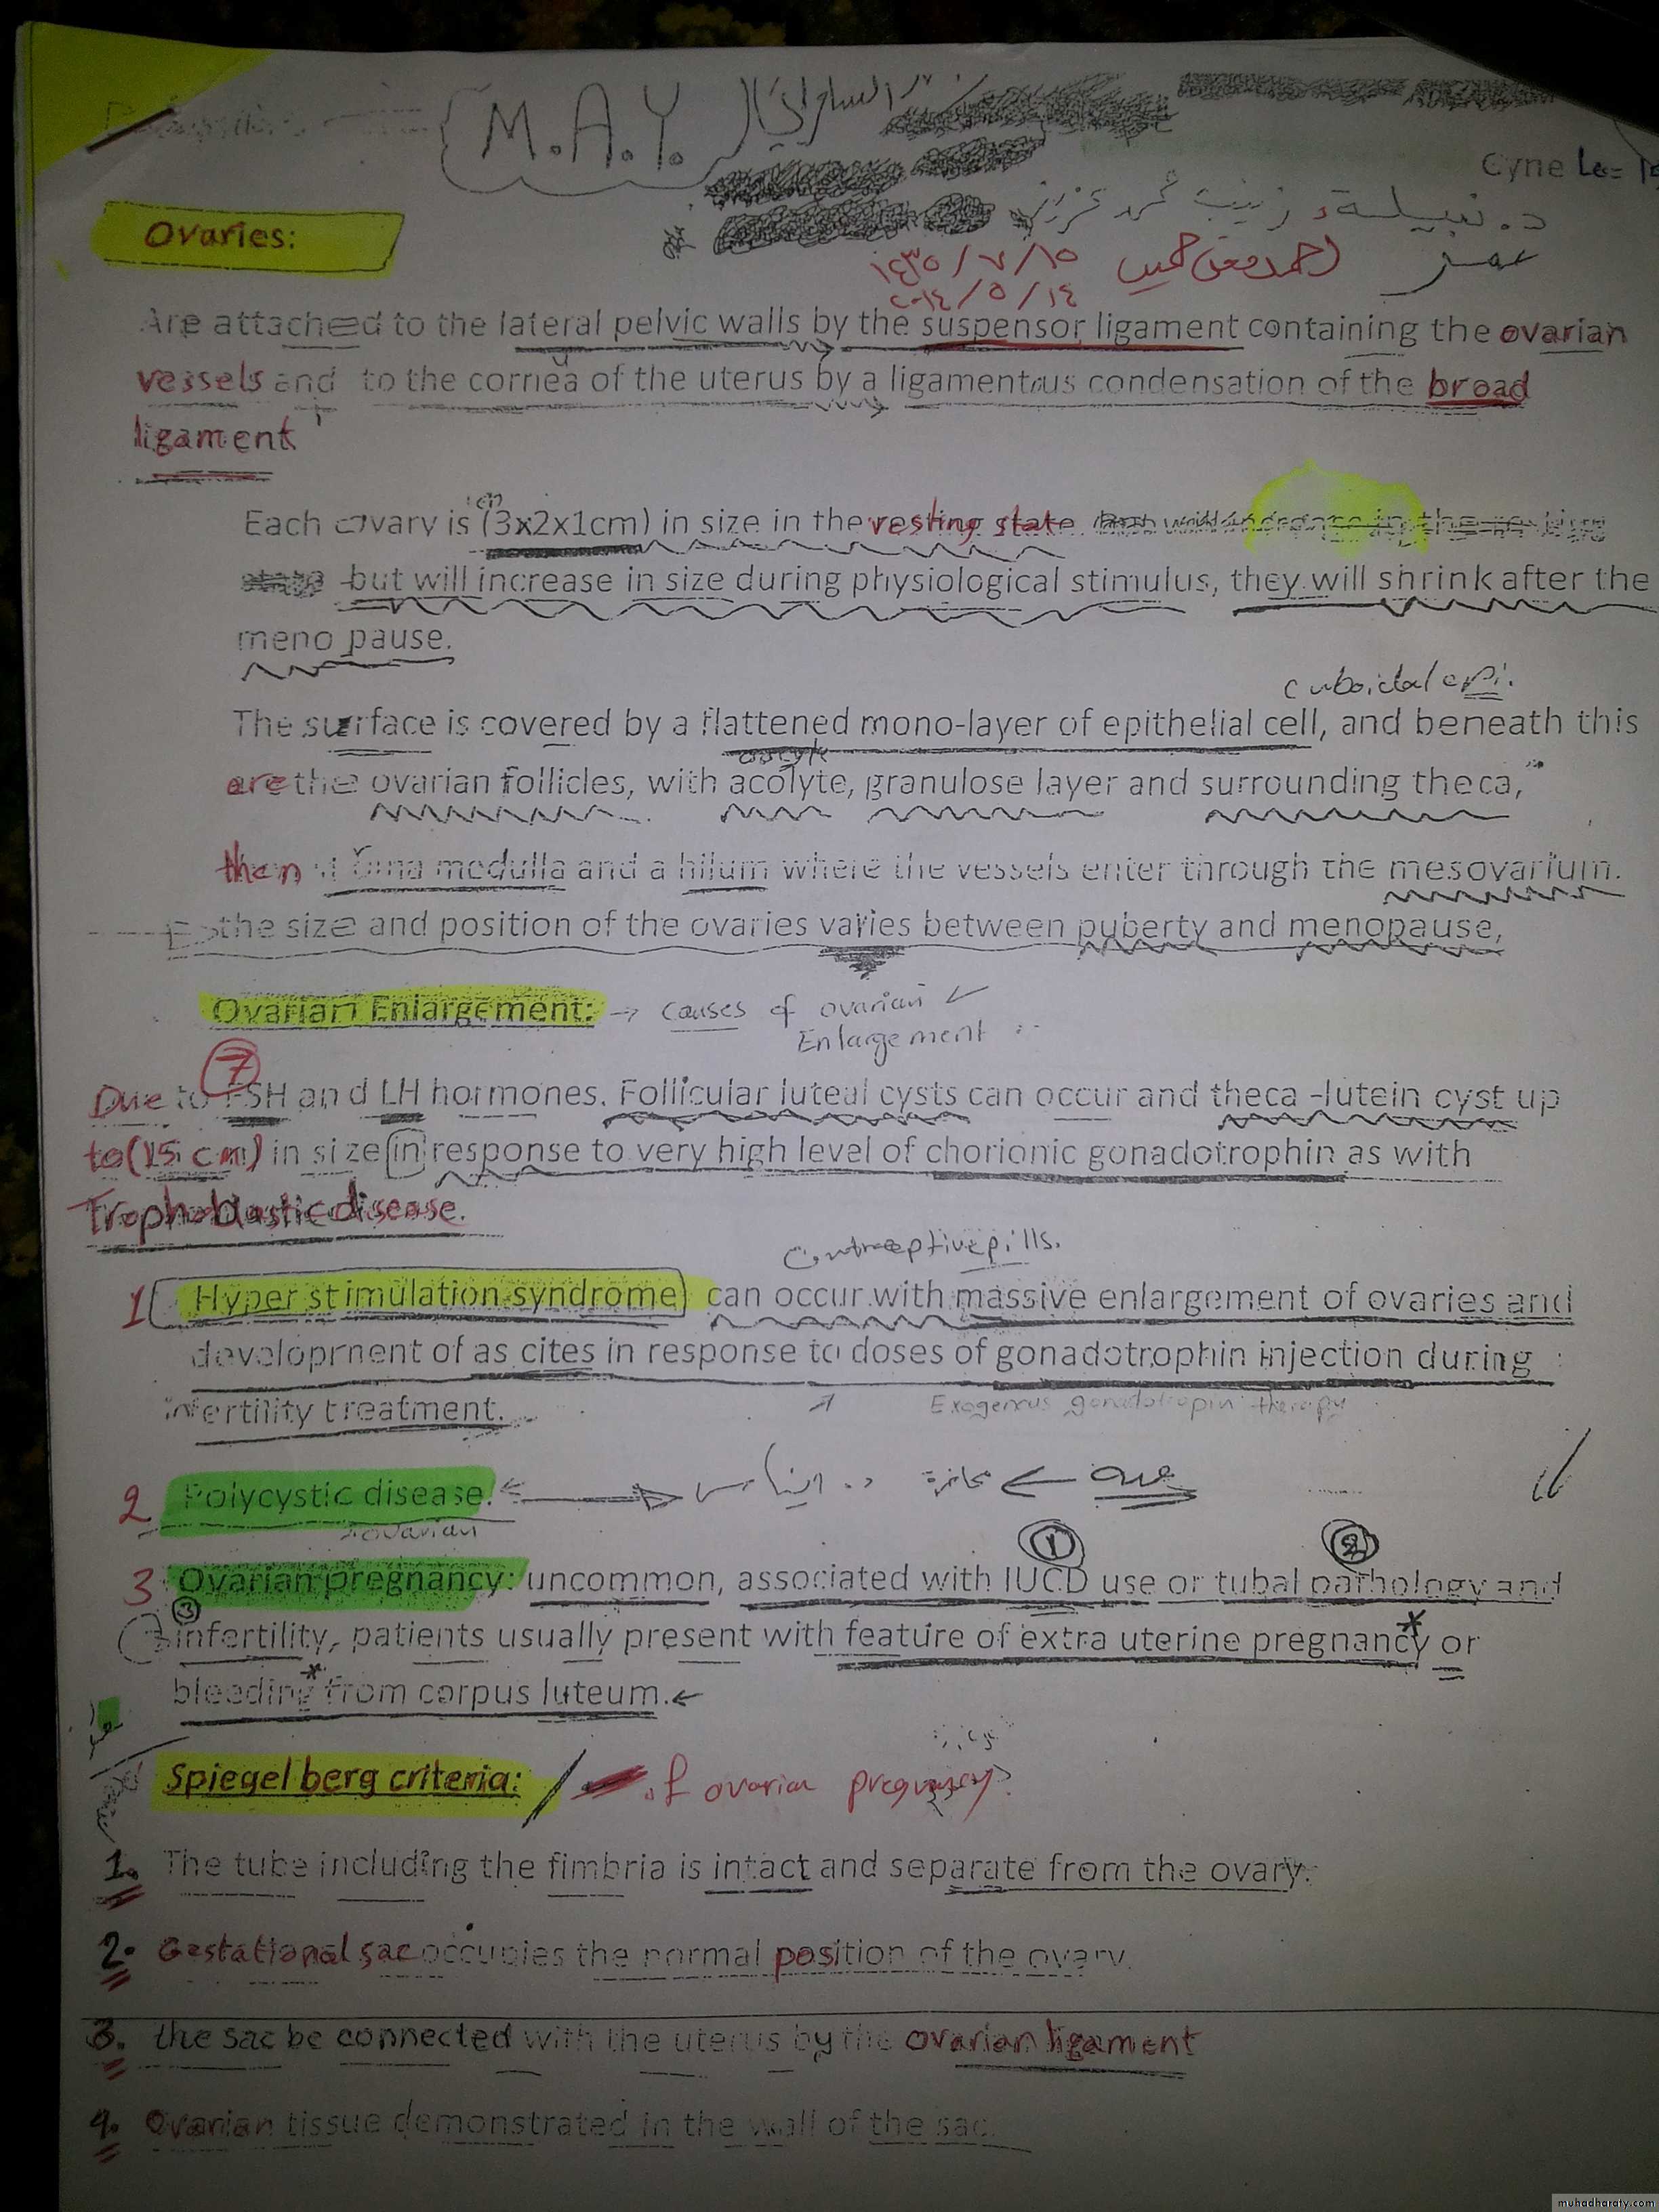 {M.A.Y.}
Gyne Le= 1
د. نبيلة، زينب محمد عزيز
Ovaries:
١٤٣٥/٧/١٥
٢٠١٤/٥/١٤
Are attached to the lateral pelvic walls by the suspensor ligament containing the ovarian
vessels and to the cornea of the uterus by a ligamentous condensation of the broad
ligament
cm
Each ovary is (3x2x1cm) in size in the resting state
but will increase in size during physiological stimulus, they will shrink after the
meno pause.
cuboidal epi.
The surface is covered by a flattened mono-layer of epithelial cell, and beneath this
oocyte
are the ovarian follicles, with acolyte, granulose layer and surrounding theca,
then medulla and a hilum where the vessels enter through the mesovarium.
the size and position of the ovaries varies between puberty and menopause,
Ovarian Enlargement: → causes of ovarian
Enlargement
7
Due to FSH and LH hormones. Follicular luteal cysts can occur and theca -lutein cyst up
to (15 cm) in size in response to very high level of chorionic gonadotrophin as with
Trophoblastic disease.
Contraceptive pills.
1 Hyper stimulation syndrome can occur with massive enlargement of ovaries and
development of as cites in response to doses of gonadotrophin injection during
infertility treatment.
Exogenous gonadotropin therapy
2 Polycystic disease.
ovarian
1 2
3 Ovarian pregnancy: uncommon, associated with IUCD use or tubal pathology and
3
infertility, patients usually present with feature of extra uterine pregnancy or
bleeding from corpus luteum.←
Spiegel berg criteria: of ovarian pregnancy
1. The tube including the fimbria is intact and separate from the ovary.
2. Gestational sac occupies the normal position of the ovary.
3. the sac be connected with the uterus by the ovarian ligament
4. Ovarian tissue demonstrated in the wall of the sac.
muhadharaty.com